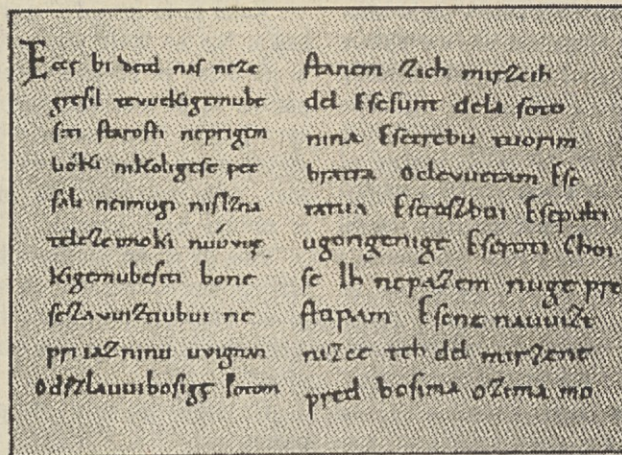 Ecce bi detd naſ neze
greſil tevuekigemube
ſiti ſtaroſti neprigem
lióki nikoligeſe pet
ſali neimugi niſlzna
teleze imoki núúvue
kigemubeſiti bone
ſezavuiztiubui ne
pri iaznina uvignan
Odſzlauuiboſige Potom
ſtanem zich mirzcih
del Eſeſunt dela ſoto
nina Eſetrebu tuorim
bratra Oclevuetam Eſe
tatua Eſeraſzboi Eſepulti
ugongenige Eſeroti Choi
ſe Ih nepazem nuge pre
ſtopam Eſene nauuizt
nizce teh del mirzene
pred boſima ozima mo